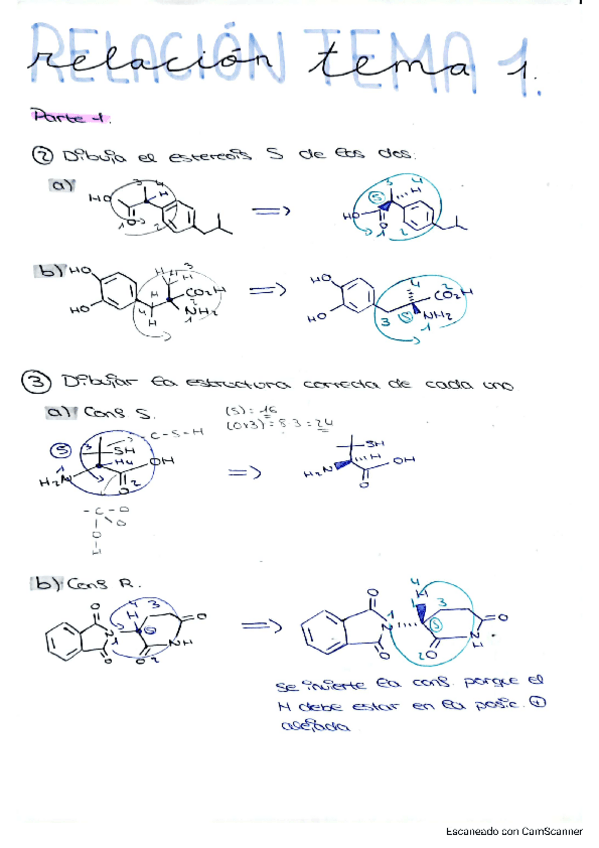 RELACIÓN TEMA 1.
relación tema 1.
Parte 1.
② Dibuja el estereois S de los dos.
a)
HO
O
H
1 2 3 4
=>
HO
O
H
S
1 2 3 4
b)
HO
HO
H
H
H
H
H
CO2H
NH2
1 2 3 4
=>
HO
HO
CO2H
NH2
S
1 2 3 4
③ Dibujar la estructura correcta de cada uno
a) Conf S.
(S): 16
(O×3) = 8·3 = 24
C-S-H
S
SH
H4
OH
H2N
O
1 2 3
=>
SH
H
OH
H2N
O
-C-O
O
O
H
b) Conf R.
O
O
N
H
O
NH
O
1 2 3 4
=>
O
O
N
H
S
O
N
H
O
1 2 3 4
Se invierte la conf. porque el
H debe estar en la posic. ⊕
alejada
Escaneado con CamScanner